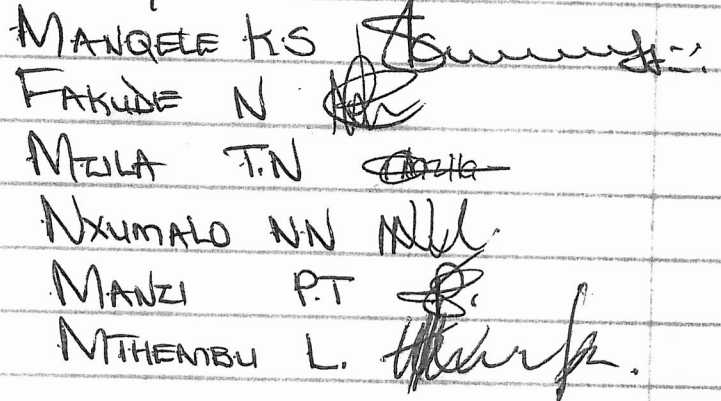 MANQELE KS
FAKUDE N
MZILA T.N
NXUMALO NN
MANZI P.T
MTHEMBU L.